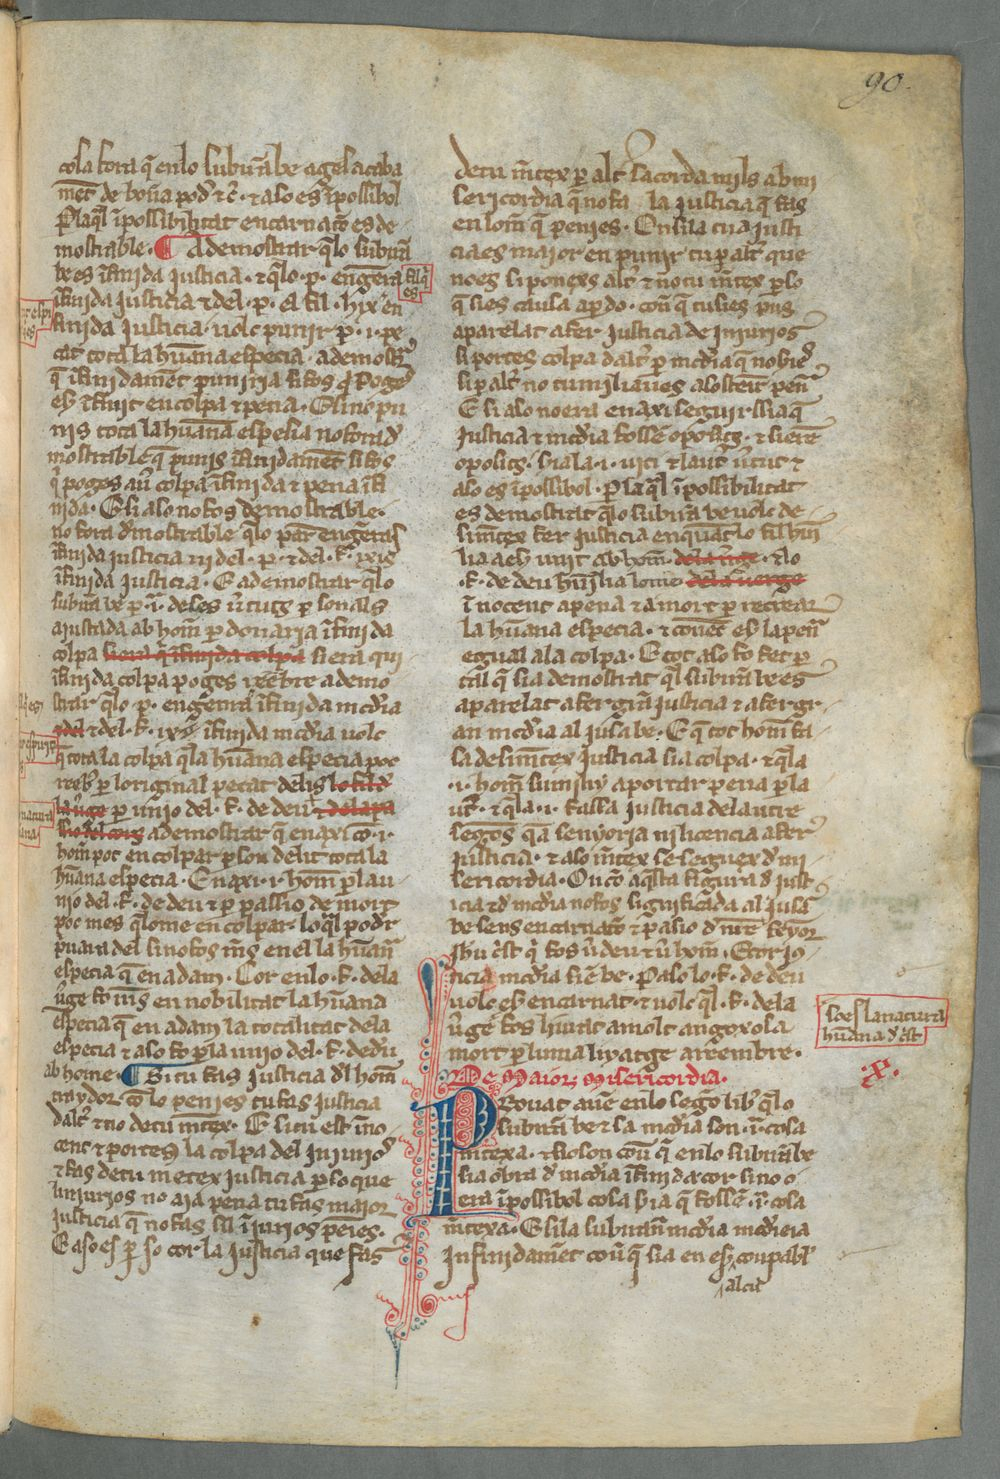 90.
cosa fora q̄ en lo subirã be agès acaba
mẽt de bona pod' ⁊ c̄. ⁊ aso es ĩpossibol
Per la q̄l ĩpossibilitat encarnaço es de
mostrable. ¶ A demostrar q̄ lo subirã
be es ĩfinida justicia. ⁊ q̄ lo .p. engenra
ĩfinida justicia ⁊ del .p. el fil. hix ĩn
finida justicia. volc punir p̱ .i. pe
cat tota la humana especia. a demostrar
q̄ ĩfinidamẽt puniria si fos q̱ poges
es̄ ĩfinit en colpa ⁊ pena. E si no pu
nis tota la humana especia no fora de
mostrable q̄ punis ĩfinidamẽt si fos
q̱ poges auer colpa ĩfinida ⁊ pena ĩfi
nida. E si aso no fos demostrable.
no fora demostrable q̄ lo pare engenras
ĩfinida justicia ni del .p. ⁊ del .f. ixis
ĩfinida justicia. E a demostrar q̄ lo
subirã be p̱ .i. de ses v̄tutz personals
ajustada ab hom̄ p̱donaria ĩfinida
colpa siera q̄ ĩfinida colpa si era qui
ĩfinida colpa poges reebre a demo
strar q̄ lo .p. engenra ĩfinida mcdia
⁊ del ⁊ del .f. ix ĩfinida mcdia volc
q̄ tota la colpa q̄ la humana especia poc
reebre p̱ l original pecat delis lo fil de
la v̄ge p̱ unio del .f. de deu ⁊ de la pa
ssio del cors a demostrar q̄ enaxi co .i.
hom̄ poc encolpar p̱ son delit tota la
humana especia. Enaxi .i. hom̄ p̱ la u
nio del .f. de deu ⁊ p̱ passio de mort
poc mes q̄ l ome en colpar. lo q̄l poder
p̱uara del si no fos mes en el la humana
especia q̄ en adam. Cor en lo .f. de la
v̄ge fo mes en nobilitat la humana
especia q̄ en adam la totalitat de la
especia ⁊ aso fo p̱ la unio del .f. de deu
ab home. ¶ Si tu fas justicia del hom̄
traydor co lo penies tu fas justicia
dalt' ⁊ no de tu metex. E si tu est ino
cent ⁊ portes la colpa del injurios
⁊ fas de tu metex justicia p̱ so que
l injurios no aja pena tu fas major
justicia q̄ no fas si l injurios penies.
E aso es p̱ so cor la justicia que fas
de tu metex p̱ alt' sacorda mils ab mi
sericordia q̄ no fa la justicia q̄ fas
en lom̄ q̄ penies. On si la tua justi
cia es major en punir tu p̱ alt' que
no es si ponexs alt' ⁊ no tu metex p̱ lo
q̄ sies causa a p̱do. coue q̄ tu sies pus
aparelat a fer justicia de injurios
si portes colpa dalt' p̱ mcdia q̄ no sies
si p̱ alt' no tumiliaues a sostenir pena
E si aso no era enaxi seguir ssia q̄
justicia ⁊ mcdia fossen oposits. ⁊ sieren
oposits. si a la .i. vici ⁊ laut' v̄tut ⁊
aso es ĩpossibol. Per la q̄l ĩpossibilitat
es demostrat q̄ lo subirã be volc de
si metex fer justicia en quant lo fil humi
lia a es̄ unit ab hom̄. de la v̄ge. ⁊ lo
.f. de deu humilia home. de la verge
ĩnocent a pena ⁊ a mort p̱ recrear
la humana especia. ⁊ coue es̄ la pena
egual a la colpa. E tot aso fo fet p̱
tal q̄ sia demostrat q̄l subirã be es
aparelat a fer gran justicia ⁊ a fer gr
an mcdia al jusa be. E q̄ tot hom̄ fa
sa de si metex justicia si a colpa. ⁊ q̄ la
.i. hom̄ sumiliy a portar pena p̱ la
ut'. ⁊ q̄ la .i. fassa justicia de lautre
segons q̄ a senyoria ni licencia a fer
justicia. ⁊ aso metex se seguex de mi
sericordia. On co aquesta figura de just
icia ⁊ de mcdia no fos significada al jusa
be sens encarnaco ⁊ pasio de nre senyor
Jhu crist q̱ fos v̄ deu ⁊ v̄ hom̄.
volc es̄ encarnat ⁊ volc q̄l .f. de la
v̄ge fos liurat a molt angoxosa
mort p̱ l umanal linatge a reembre.
De Maior Misericordia.
Prouat auem en lo sego libre q̄ lo
subirã be ⁊ sa mcdia son .i. cosa
metexa. ⁊ si o son coue q̄ en lo subirã be
sia obra de mcdia ĩfinida cor si no o
era ĩpossibol cosa sia q̄ fossen .i. cosa
metexa. E si la subirana mcdia mcdieia
infinidamẽt coue q̄ sia en es̄ coupable
alcu
so es la natura
humana de crist